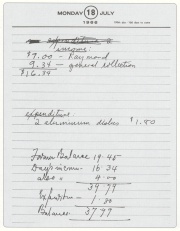 MONDAY 18 JULY
1988
income
$7.00 — Raymond
9.34 — general collection
$16.34
expenditure
2 aluminium dishes $1.80
Former Balance 19.45
Day's income 16.34
also 4.00
39.79
Expenditure 1.80
Balance 37.99